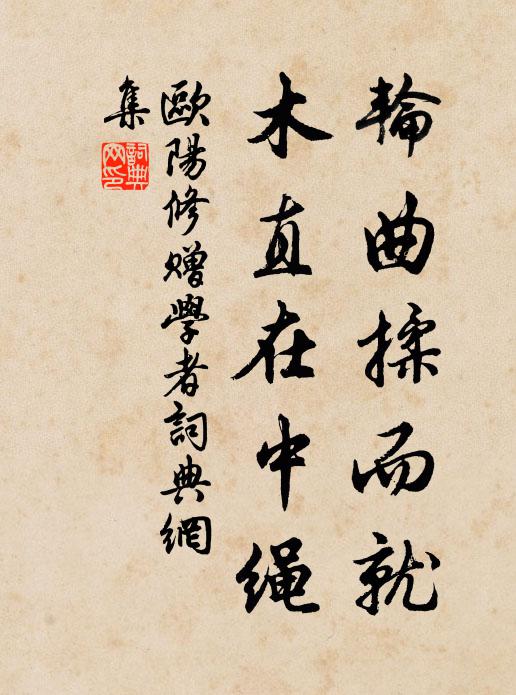 輪曲揉而就
木直在中繩
歐陽修贈學者詞典網
集
詞典
网印